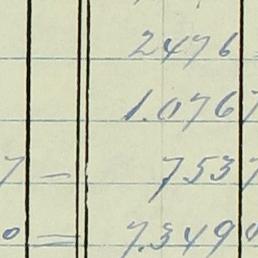 2476
1.0767
7 - 7537
0 = 7.3494